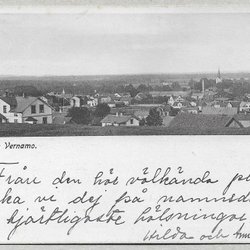 Vernamo.
Från den här välkända pl
ka vi dej på namnsd
hjärtligaste hälsningar
Hilda och